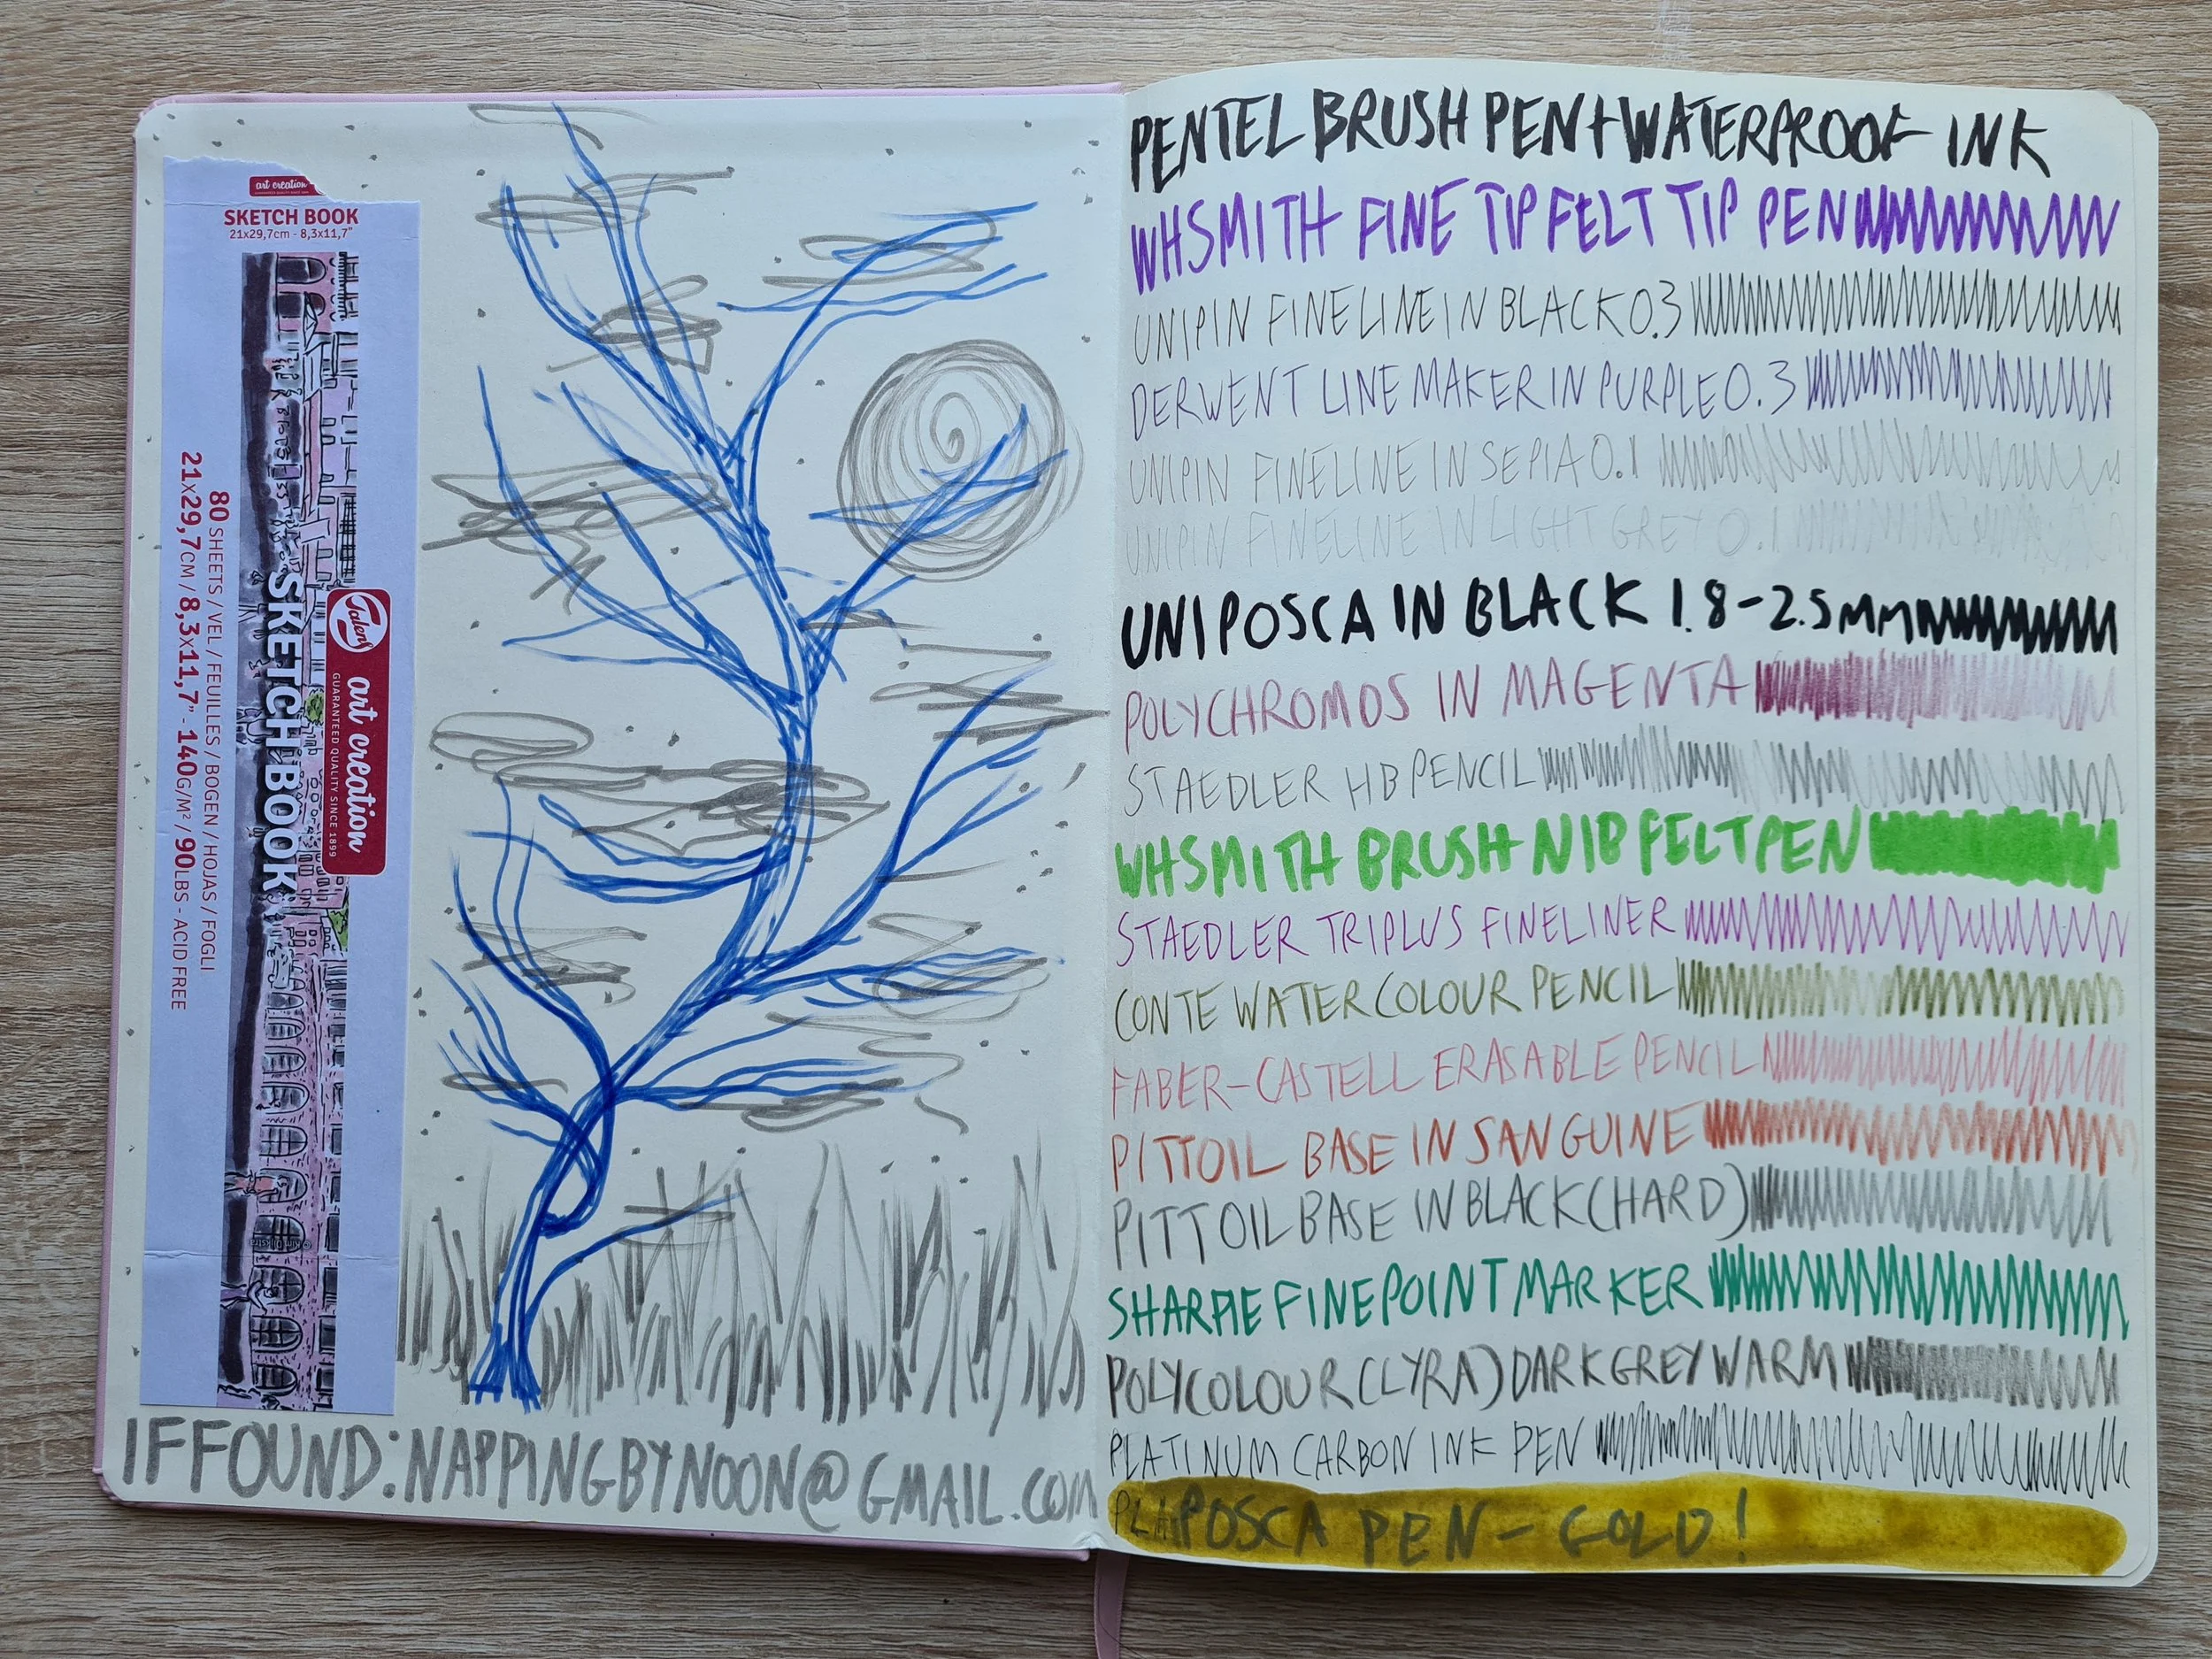 art creation
SKETCH BOOK
21x29,7cm - 8,3x11,7"
Talens
art creation
GUARANTEED QUALITY SINCE 1899
SKETCH BOOK
80 SHEETS / VEL / FEUILLES / BOGEN / HOJAS / FOGLI
21x29,7CM / 8,3x11,7" - 140G/M² / 90LBS - ACID FREE
IF FOUND: NAPPINGBYNOON@GMAIL.COM
PENTEL BRUSH PEN + WATERPROOF INK
WHSMITH FINE TIP FELT TIP PEN
UNIPIN FINELINE IN BLACK 0.3
DERWENT LINE MAKER IN PURPLE 0.3
UNIPIN FINELINE IN SEPIA 0.1
UNIPIN FINELINE IN LIGHT GREY 0.1
UNIPOSCA IN BLACK 1.8-2.5mm
POLYCHROMOS IN MAGENTA
STAEDLER HB PENCIL
WHSMITH BRUSH NIB FELT PEN
STAEDLER TRIPLUS FINELINER
CONTE WATERCOLOUR PENCIL
FABER-CASTELL ERASABLE PENCIL
PITT OIL BASE IN SANGUINE
PITT OIL BASE IN BLACK (HARD)
SHARPIE FINE POINT MARKER
POLYCOLOUR (LYRA) DARK GREY WARM
PLATINUM CARBON INK PEN
POSCA PEN - GOLD!